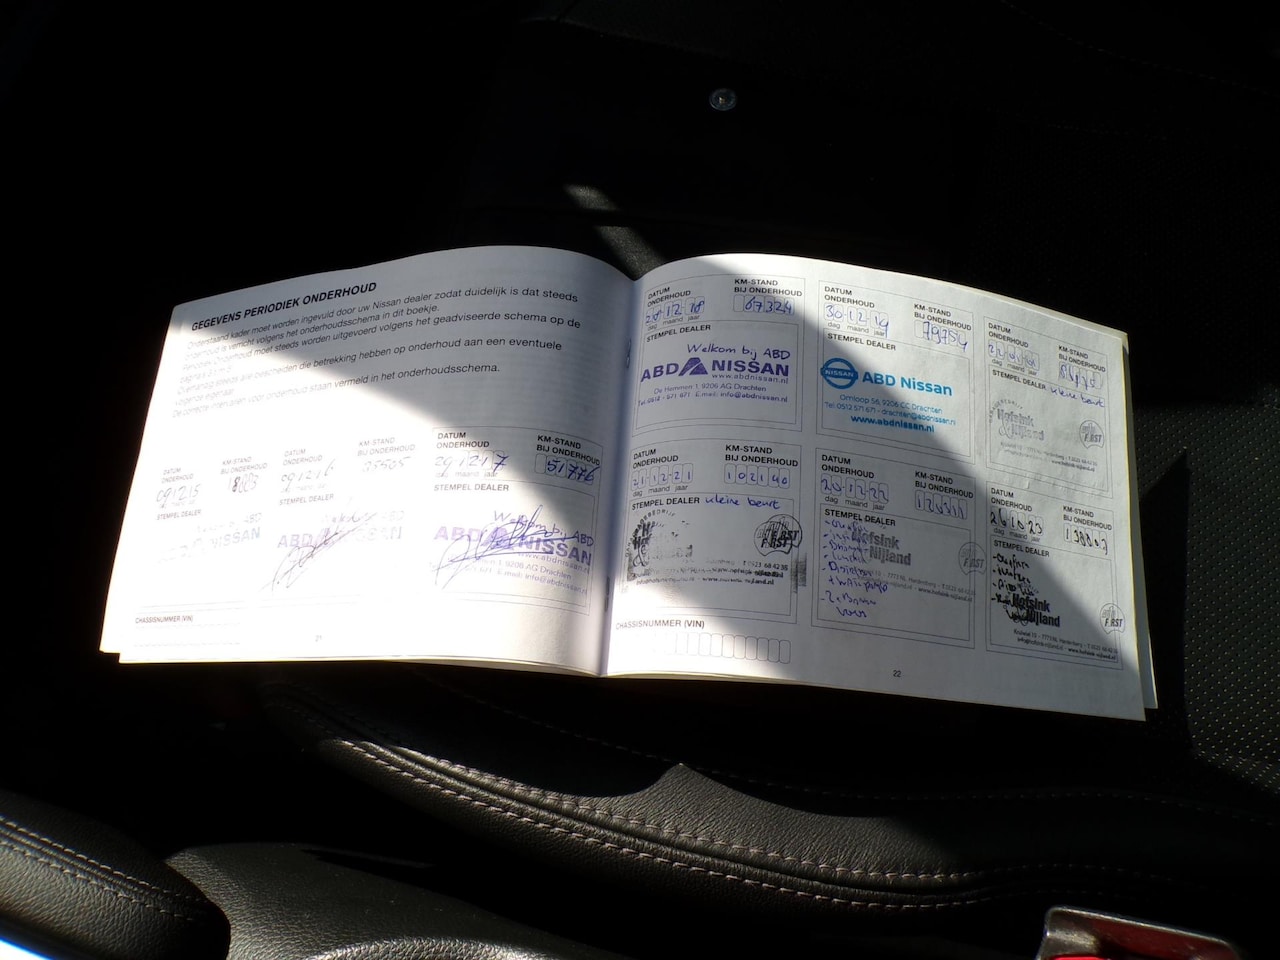 GEGEVENS PERIODIEK ONDERHOUD
Onderstaand kader moet worden ingevuld door uw Nissan dealer zodat duidelijk is dat steeds
onderhoud is verricht volgens het onderhoudsschema in dit boekje.
Periodiek Onderhoud moet steeds worden uitgevoerd volgens het geadviseerde schema op de
Overhandig steeds alle bescheiden die betrekking hebben op onderhoud aan een eventuele
volgende eigenaar.
De correcte intervallen voor onderhoud staan vermeld in het onderhoudsschema.
DATUM ONDERHOUD
KM-STAND BIJ ONDERHOUD
091215
dag maand jaar
STEMPEL DEALER
NISSAN
DATUM ONDERHOUD
KM-STAND BIJ ONDERHOUD
091216
dag maand jaar
STEMPEL DEALER
ABD NISSAN
DATUM ONDERHOUD
KM-STAND BIJ ONDERHOUD
291217
51776
dag maand jaar
STEMPEL DEALER
Welkom bij ABD
ABD NISSAN
www.abdnissan.nl
E-mail: info@abdnissan.nl
CHASSISNUMMER (VIN)
21
DATUM ONDERHOUD
KM-STAND BIJ ONDERHOUD
281218
67324
dag maand jaar
STEMPEL DEALER
Welkom bij ABD
ABD NISSAN
www.abdnissan.nl
De Hemmen 1, 9206 AG Drachten
Tel. 0512 - 571 671 E-mail: info@abdnissan.nl
DATUM ONDERHOUD
KM-STAND BIJ ONDERHOUD
301219
79754
dag maand jaar
STEMPEL DEALER
NISSAN ABD Nissan
Omloop 56, 9206 CC Drachten
Tel: 0512 571 671 - drachten@abdnissan.nl
www.abdnissan.nl
DATUM ONDERHOUD
KM-STAND BIJ ONDERHOUD
dag maand jaar
STEMPEL DEALER kleine beurt
Hofsink
& Nijland
FIRST
DATUM ONDERHOUD
KM-STAND BIJ ONDERHOUD
211221
102140
dag maand jaar
STEMPEL DEALER kleine beurt
FIRST
www.hofsink-nijland.nl
DATUM ONDERHOUD
KM-STAND BIJ ONDERHOUD
201222
dag maand jaar
STEMPEL DEALER
Hofsink
Nijland
www.hofsink-nijland.nl
DATUM ONDERHOUD
KM-STAND BIJ ONDERHOUD
261023
138807
dag maand jaar
STEMPEL DEALER
Hofsink
Nijland
FIRST
www.hofsink-nijland.nl
CHASSISNUMMER (VIN)
22